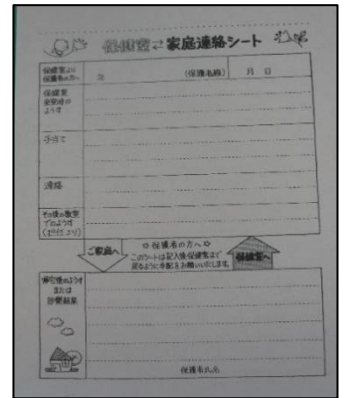 保健室⇄家庭連絡シート
保健室より
保護者の方へ
年
月 日
保健室
来室時の
ようす
手当て
連絡
その後の教室
でのようす
(担任より)
ご家庭へ
保護者の方へ
このシートは記入後保健室まで
戻るように手配をお願いいたします。
保健室へ
帰宅後のようす
または
診察結果
保護者氏名